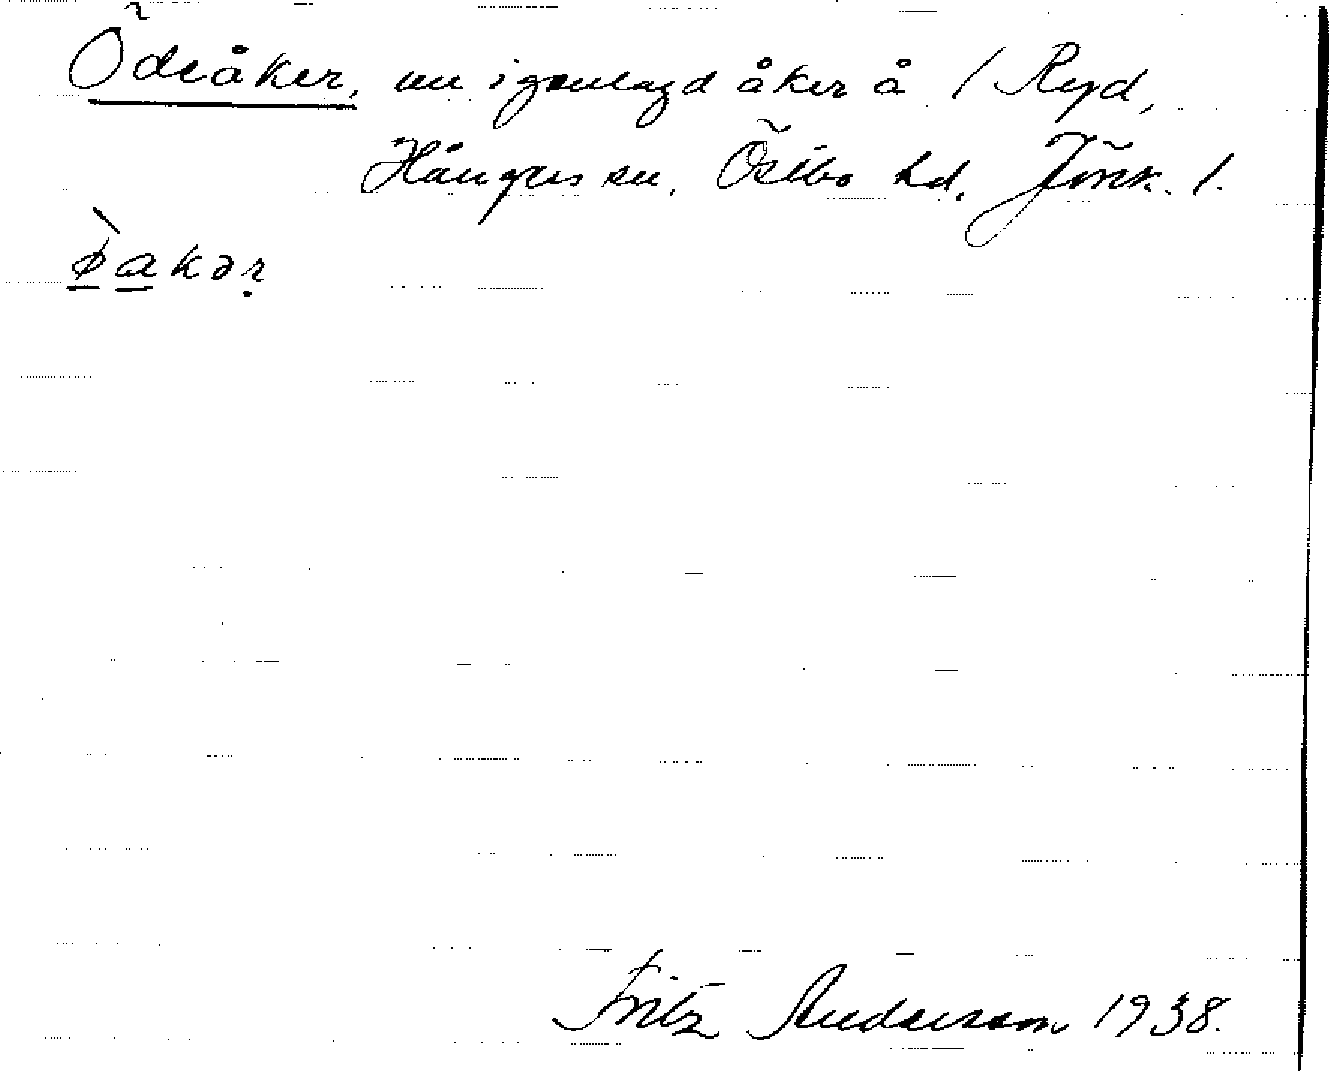 Ödeåker, nu igenlagd åker å 1 Ryd,
Hånger sn, Östbo hd, Jönk. l.
ø̀akər
Fritz Andersson 1938.